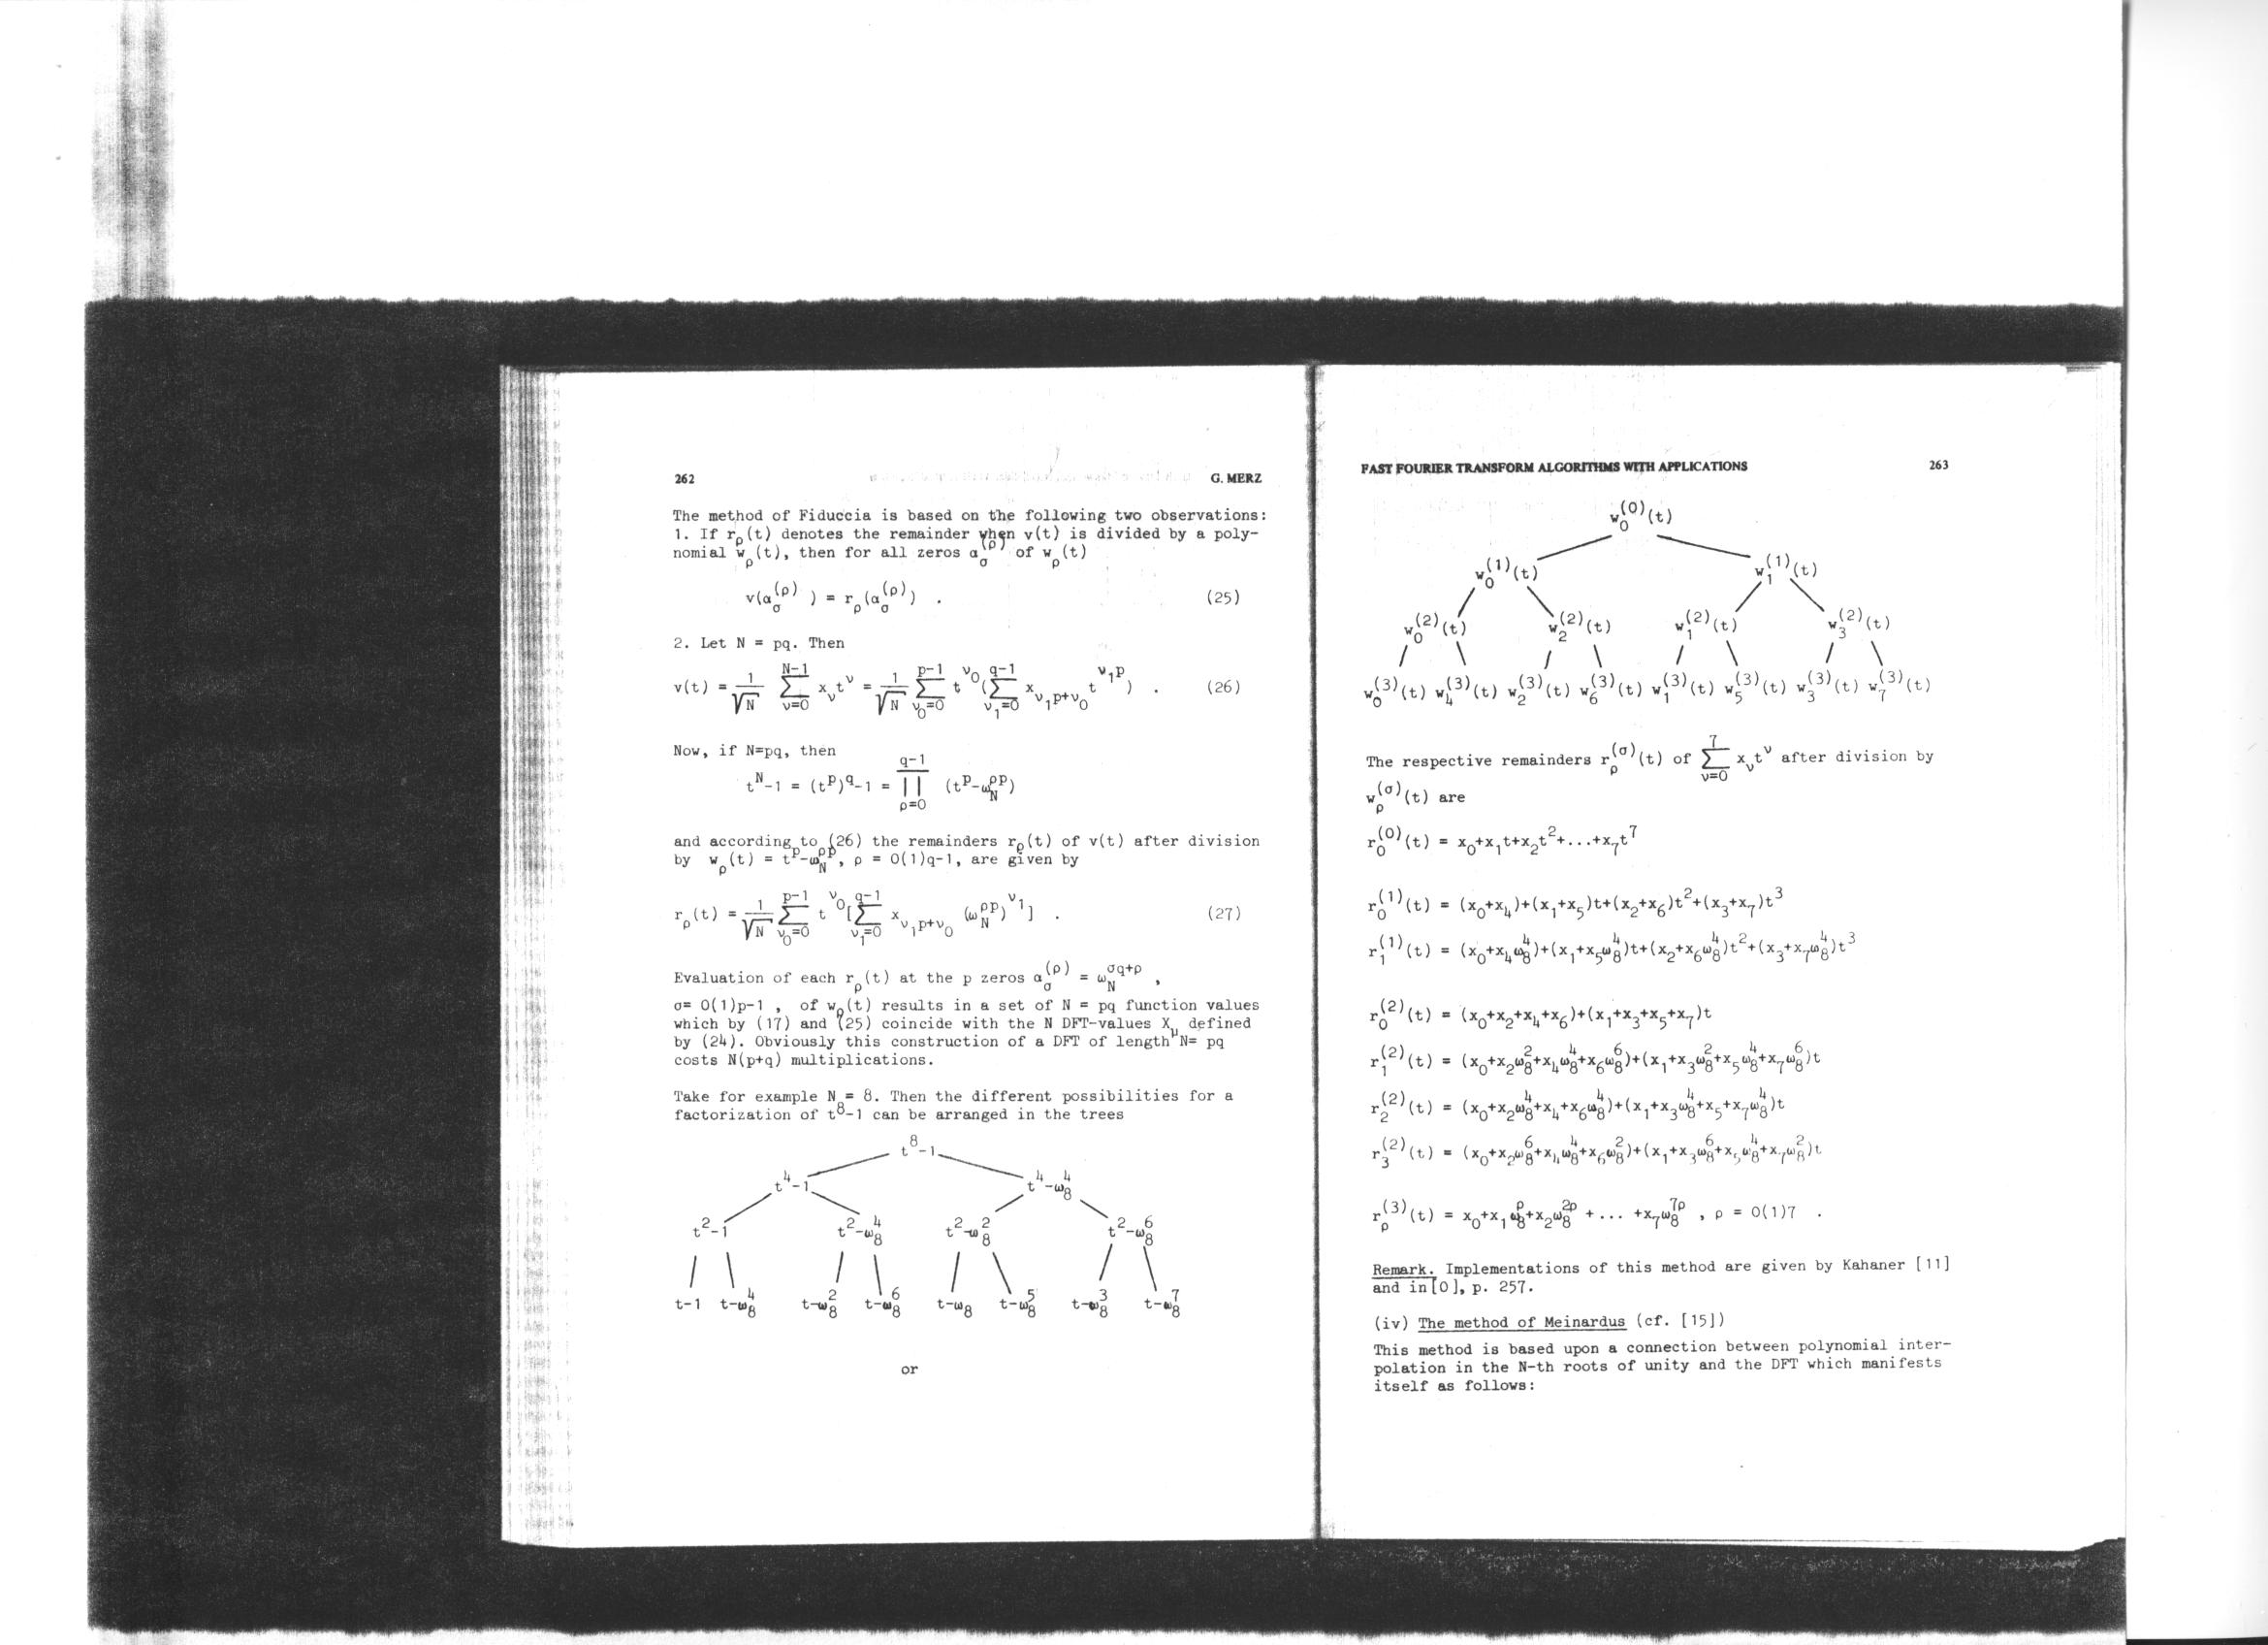 262 G. MERZ
The method of Fiduccia is based on the following two observations:
1. If r_ρ(t) denotes the remainder when v(t) is divided by a poly-
nomial w_ρ(t), then for all zeros α_σ^(ρ) of w_ρ(t)
v(α_σ^(ρ) ) = r_ρ(α_σ^(ρ)) . (25)
2. Let N = pq. Then
v(t) = 1/√N ∑_{ν=0}^{N-1} x_ν t^ν = 1/√N ∑_{ν_0=0}^{p-1} t^{ν_0} (∑_{ν_1=0}^{q-1} x_{ν_1p+ν_0} t^{ν_1p}) . (26)
Now, if N=pq, then
t^N-1 = (t^p)^q-1 = ∏_{ρ=0}^{q-1} (t^p-ω_N^{ρp})
and according to (26) the remainders r_ρ(t) of v(t) after division
by w_ρ(t) = t^p-ω_N^{ρp}, ρ = 0(1)q-1, are given by
r_ρ(t) = 1/√N ∑_{ν_0=0}^{p-1} t^{ν_0} [∑_{ν_1=0}^{q-1} x_{ν_1p+ν_0} (ω_N^{ρp})^{ν_1}] . (27)
Evaluation of each r_ρ(t) at the p zeros α_σ^(ρ) = ω_N^{σq+ρ} ,
σ= 0(1)p-1 , of w_ρ(t) results in a set of N = pq function values
which by (17) and (25) coincide with the N DFT-values X_μ defined
by (24). Obviously this construction of a DFT of length N= pq
costs N(p+q) multiplications.
Take for example N = 8. Then the different possibilities for a
factorization of t^8-1 can be arranged in the trees
t^8-1
t^4-1 t^4-ω_8^4
t^2-1 t^2-ω_8^4 t^2-ω_8^2 t^2-ω_8^6
t-1 t-ω_8^4 t-ω_8^2 t-ω_8^6 t-ω_8 t-ω_8^5 t-ω_8^3 t-ω_8^7
or
FAST FOURIER TRANSFORM ALGORITHMS WITH APPLICATIONS 263
w_0^(0)(t)
w_0^(1)(t) w_1^(1)(t)
w_0^(2)(t) w_2^(2)(t) w_1^(2)(t) w_3^(2)(t)
w_0^(3)(t) w_4^(3)(t) w_2^(3)(t) w_6^(3)(t) w_1^(3)(t) w_5^(3)(t) w_3^(3)(t) w_7^(3)(t)
The respective remainders r_ρ^(σ)(t) of ∑_{ν=0}^{7} x_ν t^ν after division by
w_ρ^(σ)(t) are
r_0^(0)(t) = x_0+x_1t+x_2t^2+...+x_7t^7
r_0^(1)(t) = (x_0+x_4)+(x_1+x_5)t+(x_2+x_6)t^2+(x_3+x_7)t^3
r_1^(1)(t) = (x_0+x_4ω_8^4)+(x_1+x_5ω_8^4)t+(x_2+x_6ω_8^4)t^2+(x_3+x_7ω_8^4)t^3
r_0^(2)(t) = (x_0+x_2+x_4+x_6)+(x_1+x_3+x_5+x_7)t
r_1^(2)(t) = (x_0+x_2ω_8^2+x_4ω_8^4+x_6ω_8^6)+(x_1+x_3ω_8^2+x_5ω_8^4+x_7ω_8^6)t
r_2^(2)(t) = (x_0+x_2ω_8^4+x_4+x_6ω_8^4)+(x_1+x_3ω_8^4+x_5+x_7ω_8^4)t
r_3^(2)(t) = (x_0+x_2ω_8^6+x_4ω_8^4+x_6ω_8^2)+(x_1+x_3ω_8^6+x_5ω_8^4+x_7ω_8^2)t
r_ρ^(3)(t) = x_0+x_1ω_8^ρ+x_2ω_8^{2ρ} + ... +x_7ω_8^{7ρ} , ρ = 0(1)7 .
Remark. Implementations of this method are given by Kahaner [11]
and in[0], p. 257.
(iv) The method of Meinardus (cf. [15])
This method is based upon a connection between polynomial inter-
polation in the N-th roots of unity and the DFT which manifests
itself as follows: